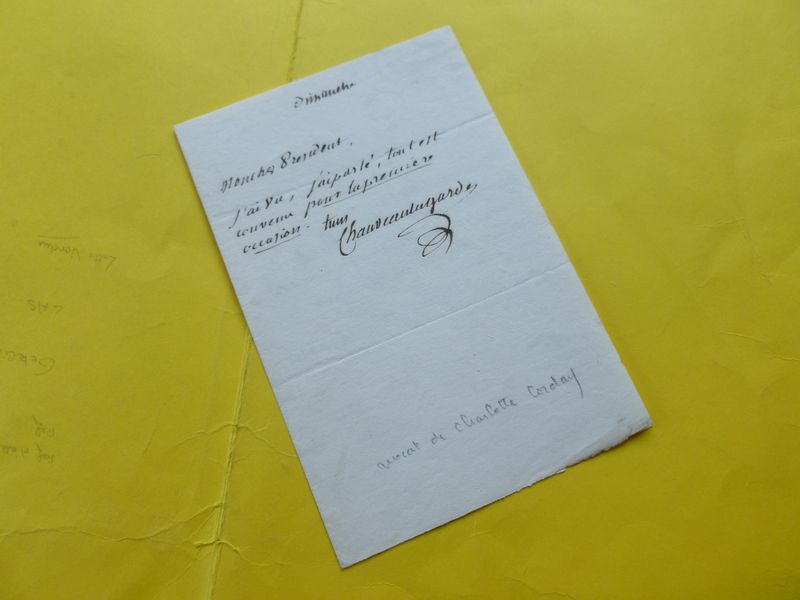 Dimanche
Mon cher Président,
j'ai vu, j'ai parlé, tout est
convenu pour la première
occasion. tuus
Chauveaulagarde
avocat de Charlotte Corday